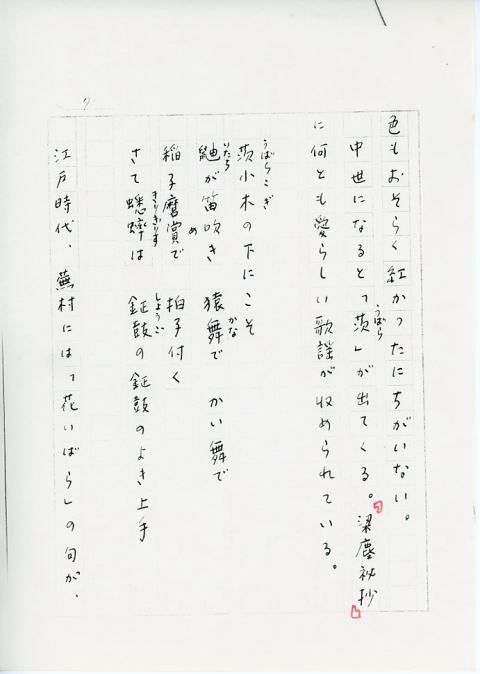 7
色もおそらく紅かったにちがいない。
中世になると「茨」が出てくる。『梁塵秘抄』
うばら
に何とも愛らしい歌謡が収められている。
うばらこぎ
茨小木の下にこそ
いたち
鼬が笛吹き 猿舞で かい舞で
かな
め
稲子麿賞で 拍子付く
きりぎりす
さて蟋蟀は 鉦鼓の鉦鼓のよき上手
しょうご
江戸時代、蕪村には「花いばら」の句が、